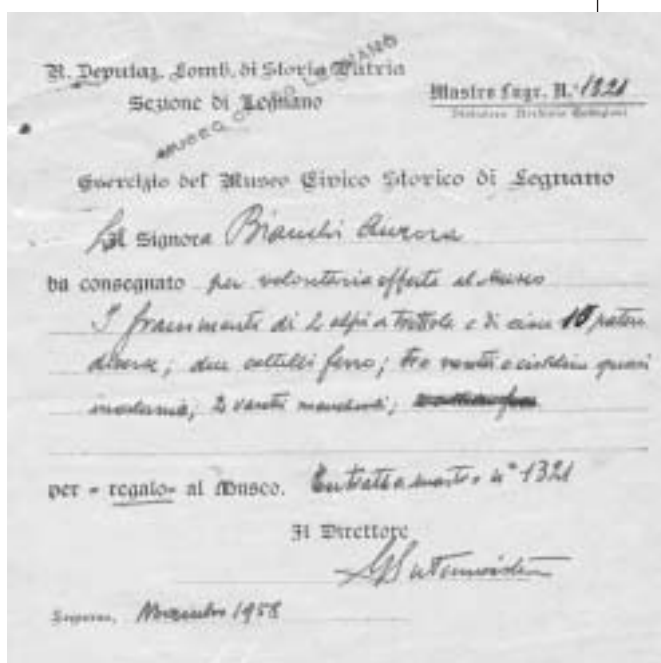 R. Deputaz. Lomb. di Storia Patria
Sezione di Legnano
MUSEO CIVICO LEGNANO
Mastro Ingr. N. 1321
Esercizio del Museo Civico Storico di Legnano
La Signora Bianchi Aurora
ha consegnato per volontaria offerta al Museo
I frammenti di 2 olpi a trottola e di circa 10 patere
diverse; due coltelli ferro; tre vasetti o ciotoline quasi
2 vasetti
per "regalo" al Museo. Entrata a mastro n° 1321
Il Direttore
Legnano, Novembre 1958